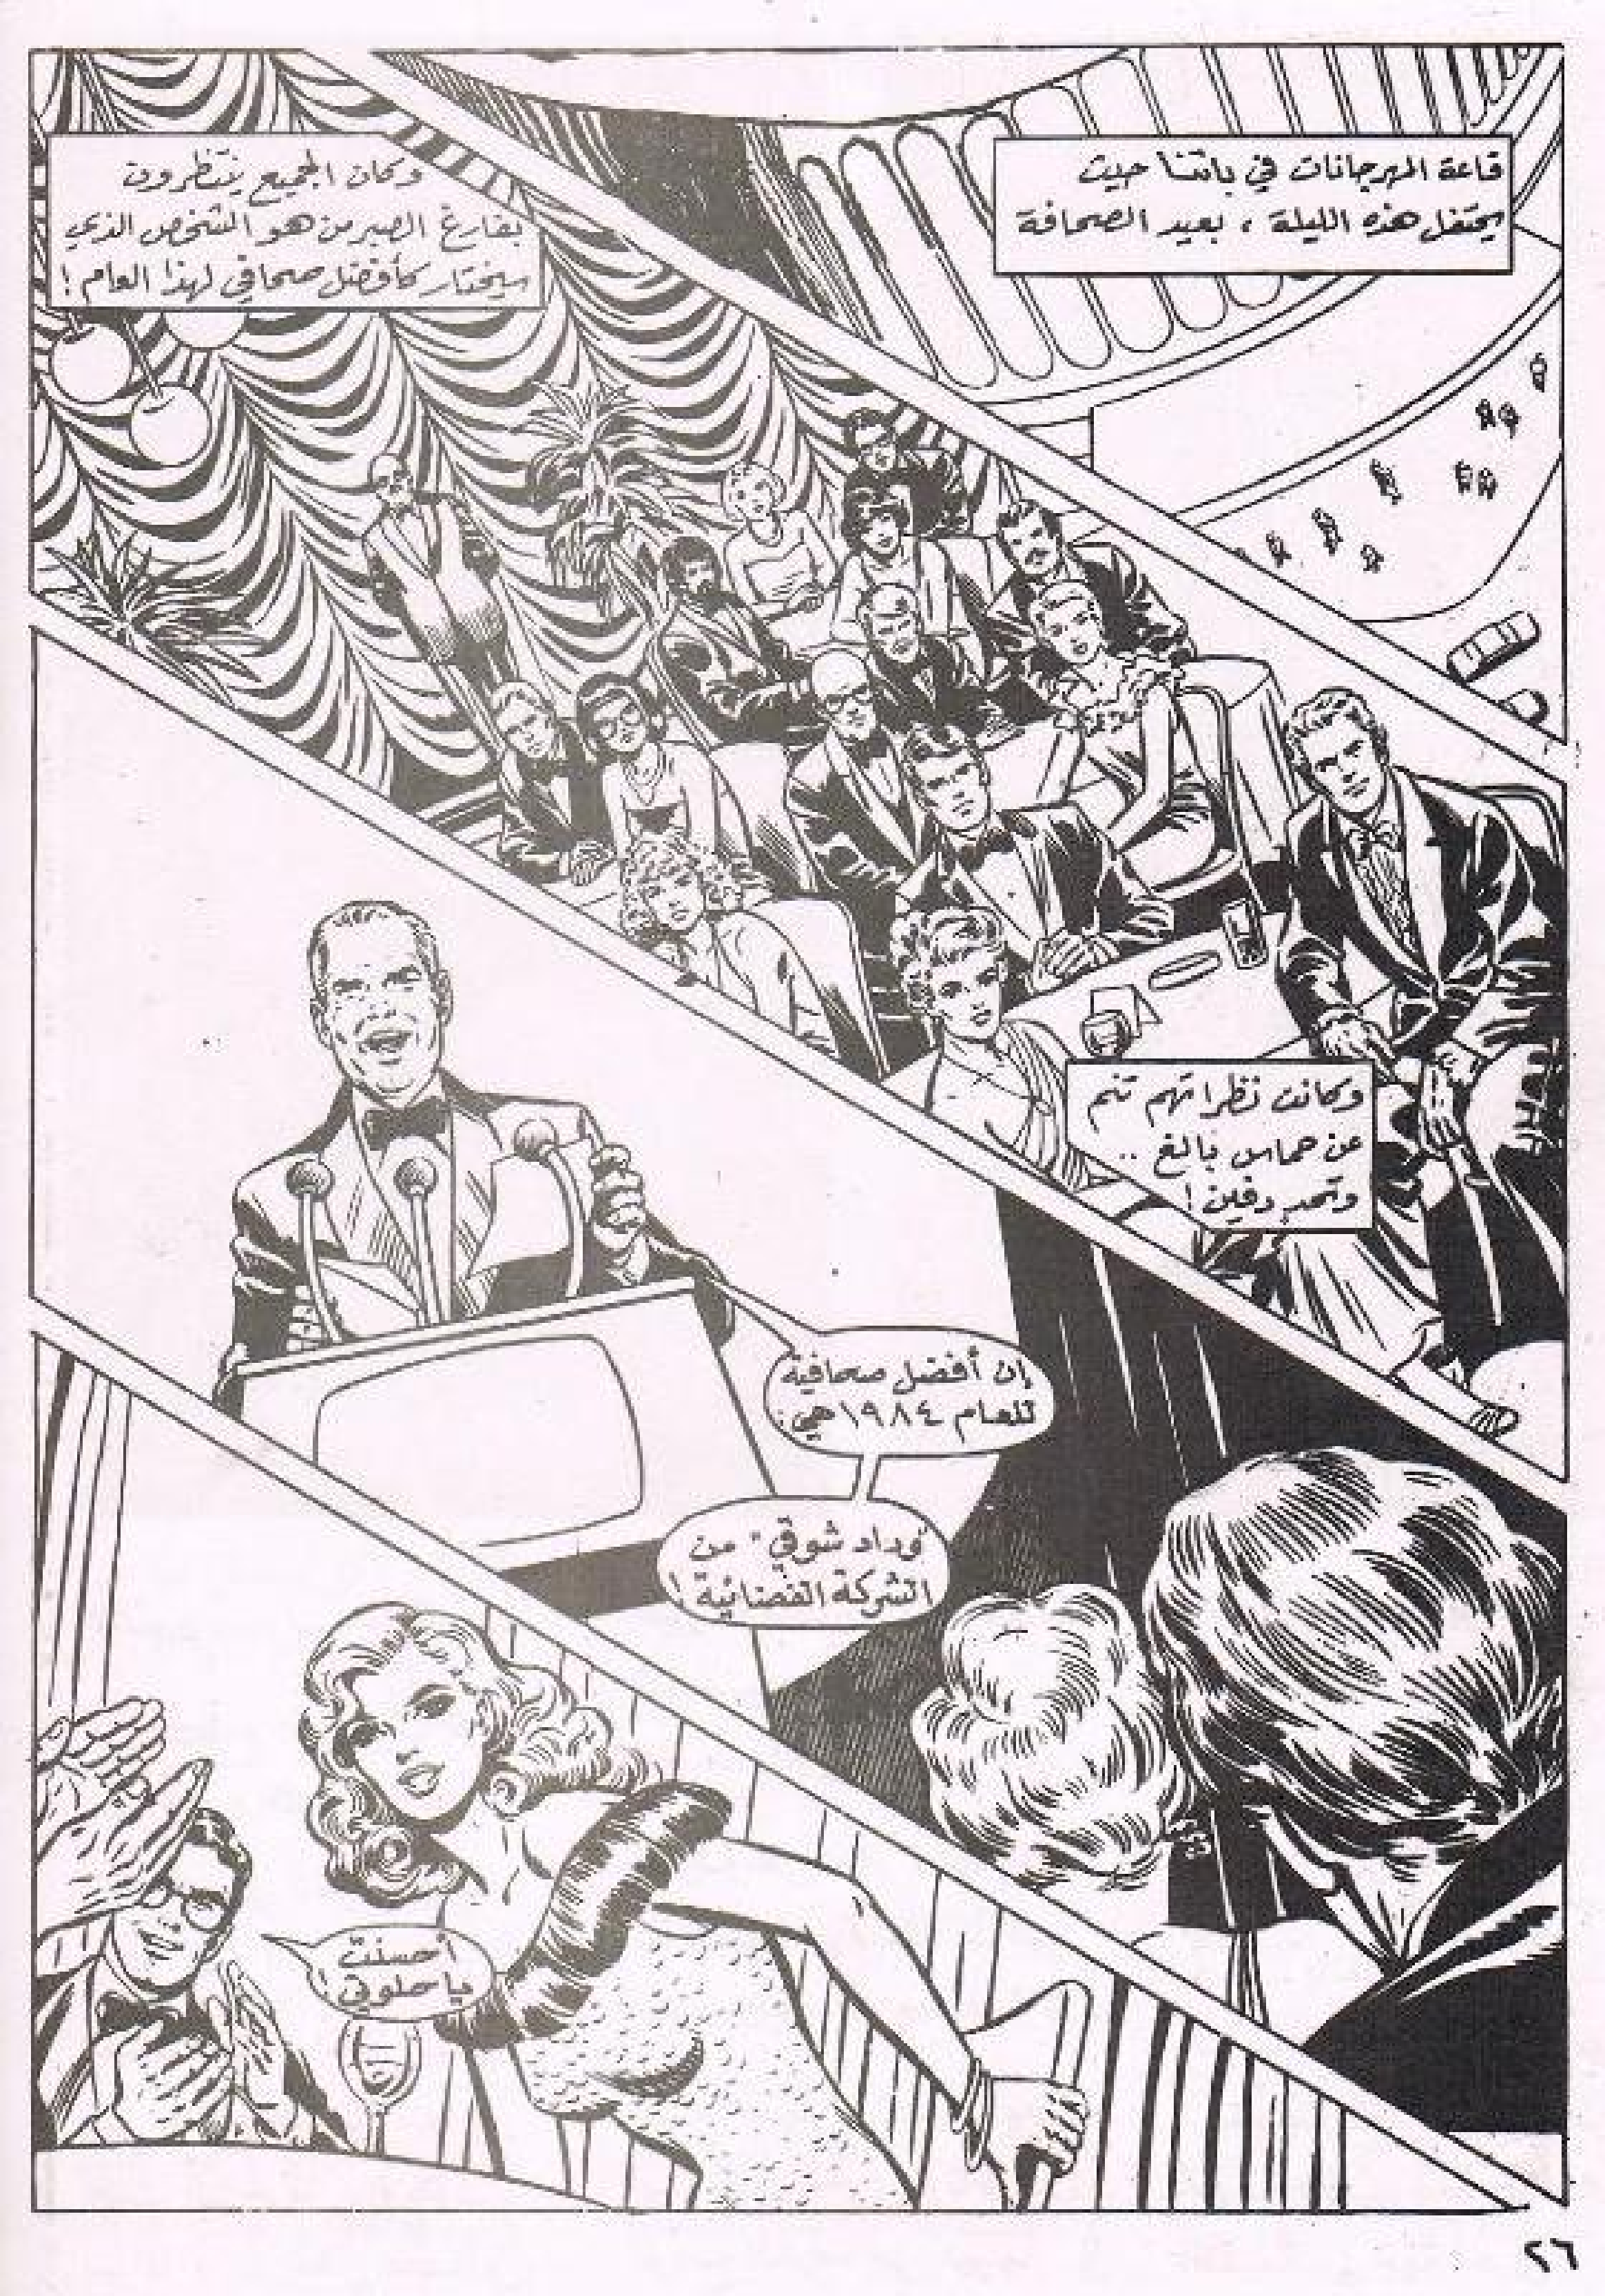 قاعة المهرجانات في باتنا حيث
يحتفل هذه الليلة ، بعيد الصحافة
وكان الجميع ينتظرون
بفارغ الصبر من هو الشخص الذي
سيختار كأفضل صحافي لهذا العام !
وكانت نظراتهم تنم
عن حماس بالغ ..
وتحد دفين !
إن أفضل صحافية
للعام ١٩٨٤ هي :
"وداد شوقي" من
الشركة الفضائية !
أحسنت
يا حلوتي !
٢٦